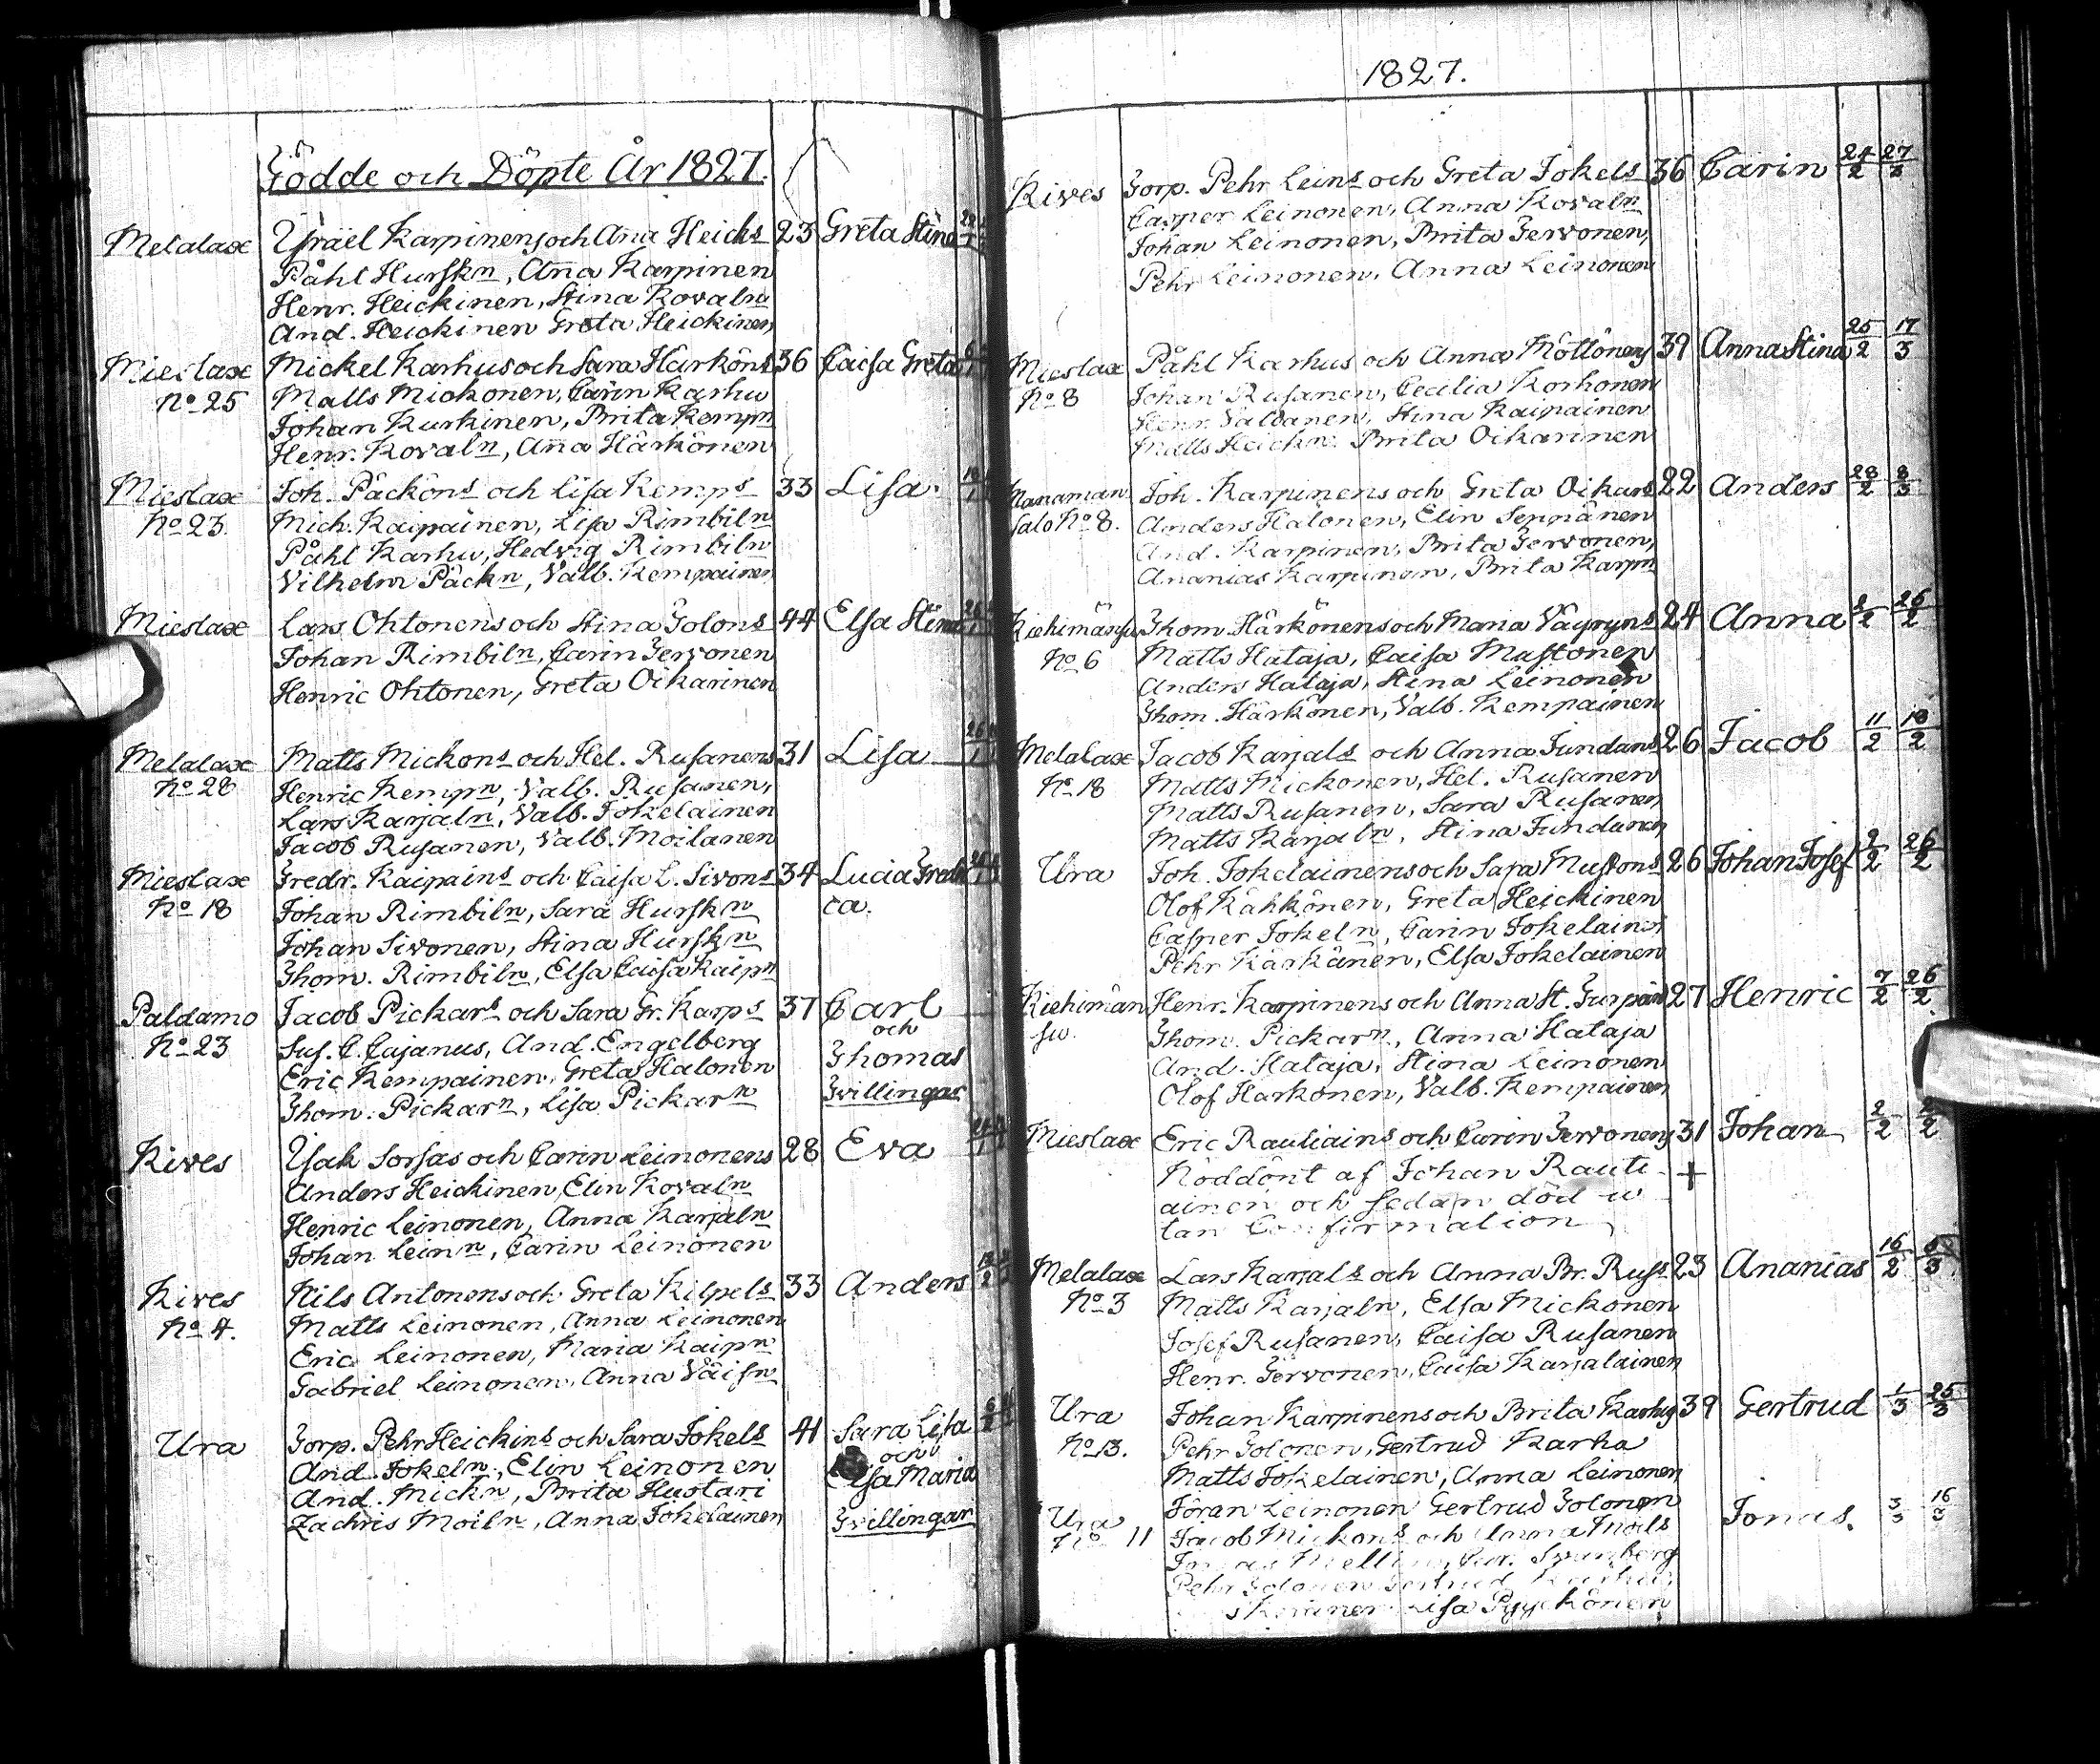 Födde och Döpte År 1827.
Melalax Ysräel Karpinens och Ana Heicks 23 Greta Stina
Påhl Hurskn, Ana Karpinen
Henr. Heickinen, Stina Kovaln
And. Heickinen Greta Heickinen
Mieslax Mickel Karhus och Sara Härköns 36 Caisa Greta
No 25 Matts Mickonen, Carin Karhu
Johan Kurkinen, Brita Kempn
Henr. Kovaln, Ana Härkönen
Mieslax Joh. Päcköns och Lisa Kemps 33 Lisa.
No 23. Mich. Kaipainen, Lisa Rimbiln
Påhl Karhu, Hedvig Rimbiln
Vilhelm Päckn, Valb. Kempainen
Mieslax Lars Ohtonens och Stina Tolons 44 Elsa Stina
Johan Rimbiln, Carin Tervonen
Henric Ohtonen, Greta Oikarinen
Melalax Matts Mickons och Hel. Rusanens 31 Lisa
No 28 Henric Kempn, Valb. Rusanen,
Lars Karjaln, Valb. Jokelainen
Jacob Rusanen, Valb. Moilanen
Mieslax Fredr. Kaipains och Caisa L. Sivons 34 Lucia Fredri
No 18 Johan Rimbiln, Sara Hurskn ca.
Johan Sivonen, Stina Hurskn
Thom. Rimbiln, Elsa Caisa Kaipn
Paldamo Jacob Pickars och Sara Gr. Karps 37 Carl
och
No 23 Sus. C. Cajanus, And. Engelberg Thomas
Eric Kempainen, Greta Halonen
Thom. Pickarn, Lisa Pickarn Tvillingar
Kives Ysak Sorsas och Carin Leinonens 28 Eva
Anders Heickinen, Elin Kovaln
Henric Leinonen, Anna Karjaln
Johan Leinn, Carin Leinonen
Kives Nils Antonens och Greta Kilpels 33 Anders
No 4. Matts Leinonen, Anna Leinonen
Eric Leinonen, Maria Kaipn
Gabriel Leinonen, Anna Väisn
Ura Torp. Pehr Heickins och Sara Jokels 41 Sara Lisa
och
And. Jokeln, Elin Leinonen Elsa Maria
And. Mickn, Brita Hustari
Zachris Moiln, Anna Jokelainen Tvillingar
1827.
Kives Torp. Pehr Leins och Greta Jokels 36 Carin 24/2 27/2
Casper Leinonen, Anna Kovaln
Johan Leinonen, Brita Tervonen,
Pehr Leinonen, Anna Leinonen
Mieslax Påhl Karhus och Anna Möttönens 39 Anna Stina 25/2 17/3
No 8 Johan Rusanen, Cecilia Korhonen
Henr. Valdanen, Stina Kaipainen
Matts Heickn. Brita Oikarinen
Manaman Joh. Karpinens och Greta Oikars 22 Anders 28/2 8/3
salo No 8. Anders Halonen, Elin Seppänen
And. Karpinen, Brita Tervonen,
Ananias Karpinen, Brita Karpn
Kiehimänsu Thom Härkönens och Maria Väyryns 24 Anna 26/2
No 6 Matts Hataja, Caisa Mustonen
Anders Hataja, Stina Leinonen
Thom. Härkönen, Valb. Kempainen
Melalax Jacob Karjals och Anna Tundans 26 Jacob 11/2 18/2
No 18 Matts Mickonen, Hel. Rusanen
Matts Rusanen, Sara Rusanen
Matts Karjaln, Stina Tundanen
Ura Joh. Jokelainens och Sara Mustons 26 Johan Josef 2/2 26/2
Olof Kähkönen, Greta Heickinen
Casper Jokeln, Carin Jokelainen
Pehr Karkänen, Elsa Jokelainen
Kiehimän Henr. Karpinens och Anna St. Turpains 27 Henric 7/2 26/2
su. Thom. Pickarn, Anna Hataja
And. Hataja, Stina Leinonen
Olof Harkonen, Valb. Kempainen
Mieslax Eric Rautiains och Carin Tervonens 31 Johan 2/2
Nöddöpt af Johan Rauti- +
ainen och sedan död u-
tan Confirmation
Melalax Lars Karjals och Anna Br. Russ 23 Ananias 16/2
No 3 Matts Karjaln, Elsa Mickonen
Josef Rusanen, Caisa Rusanen
Henr. Tervonen, Caisa Karjalainen
Ura Johan Karpinens och Brita Karhus 39 Gertrud 1/3 25/3
No 13. Pehr Tolonen, Gertrud Karha
Matts Jokelainen, Anna Leinonen
Jöran Leinonen Gertrud Tolonen
Ura Jacob Mickons och Anna Moils Jonas. 3/3 16/3
No 11
Pehr Tolonen Gertrud
Lisa Pyyckönen